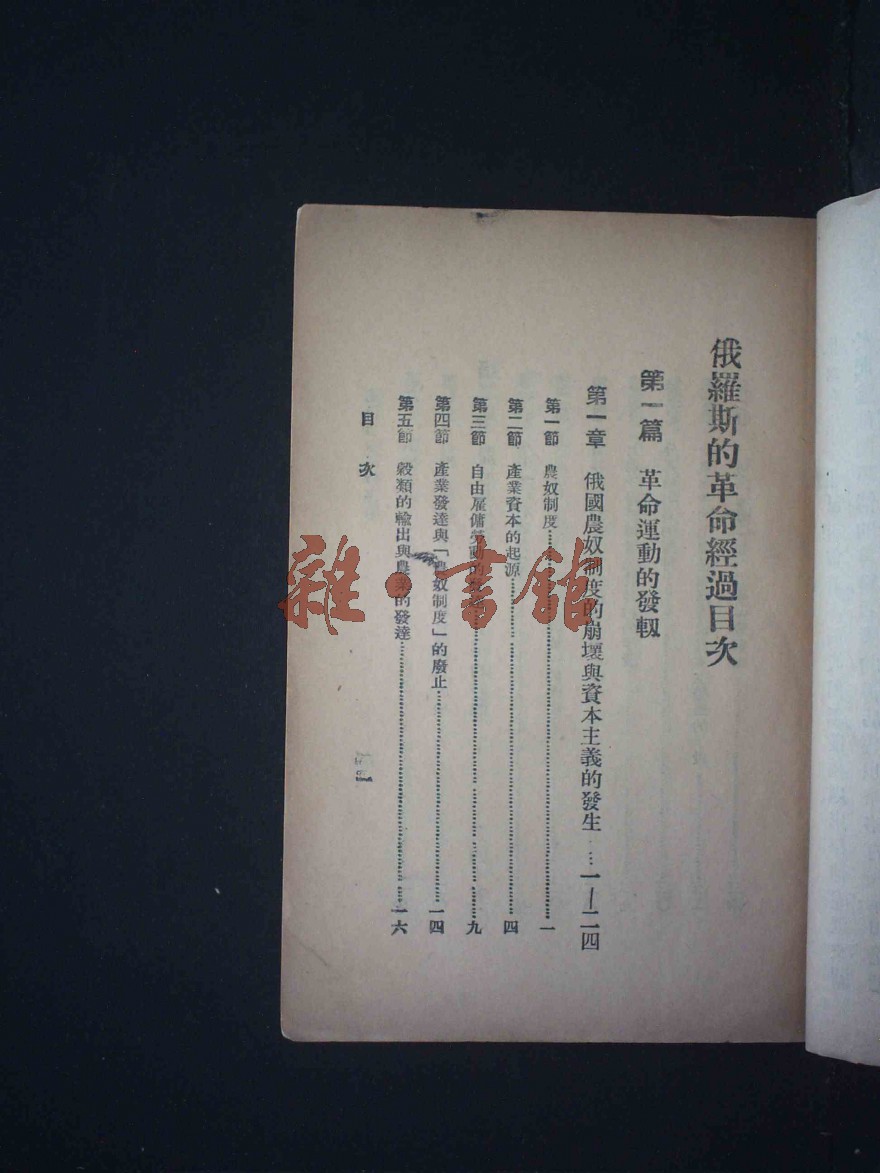 俄羅斯的革命經過目次
第一篇 革命運動的發軔
第一章 俄國農奴制度的崩壞與資本主義的發生…一—二四
第一節 農奴制度…一
第二節 產業資本的起源…四
第三節 自由雇傭勞動的…九
第四節 產業發達與「農奴制度」的廢止…一四
第五節 穀類的輸出與農業的發達…一六
目次
一
雜·書館